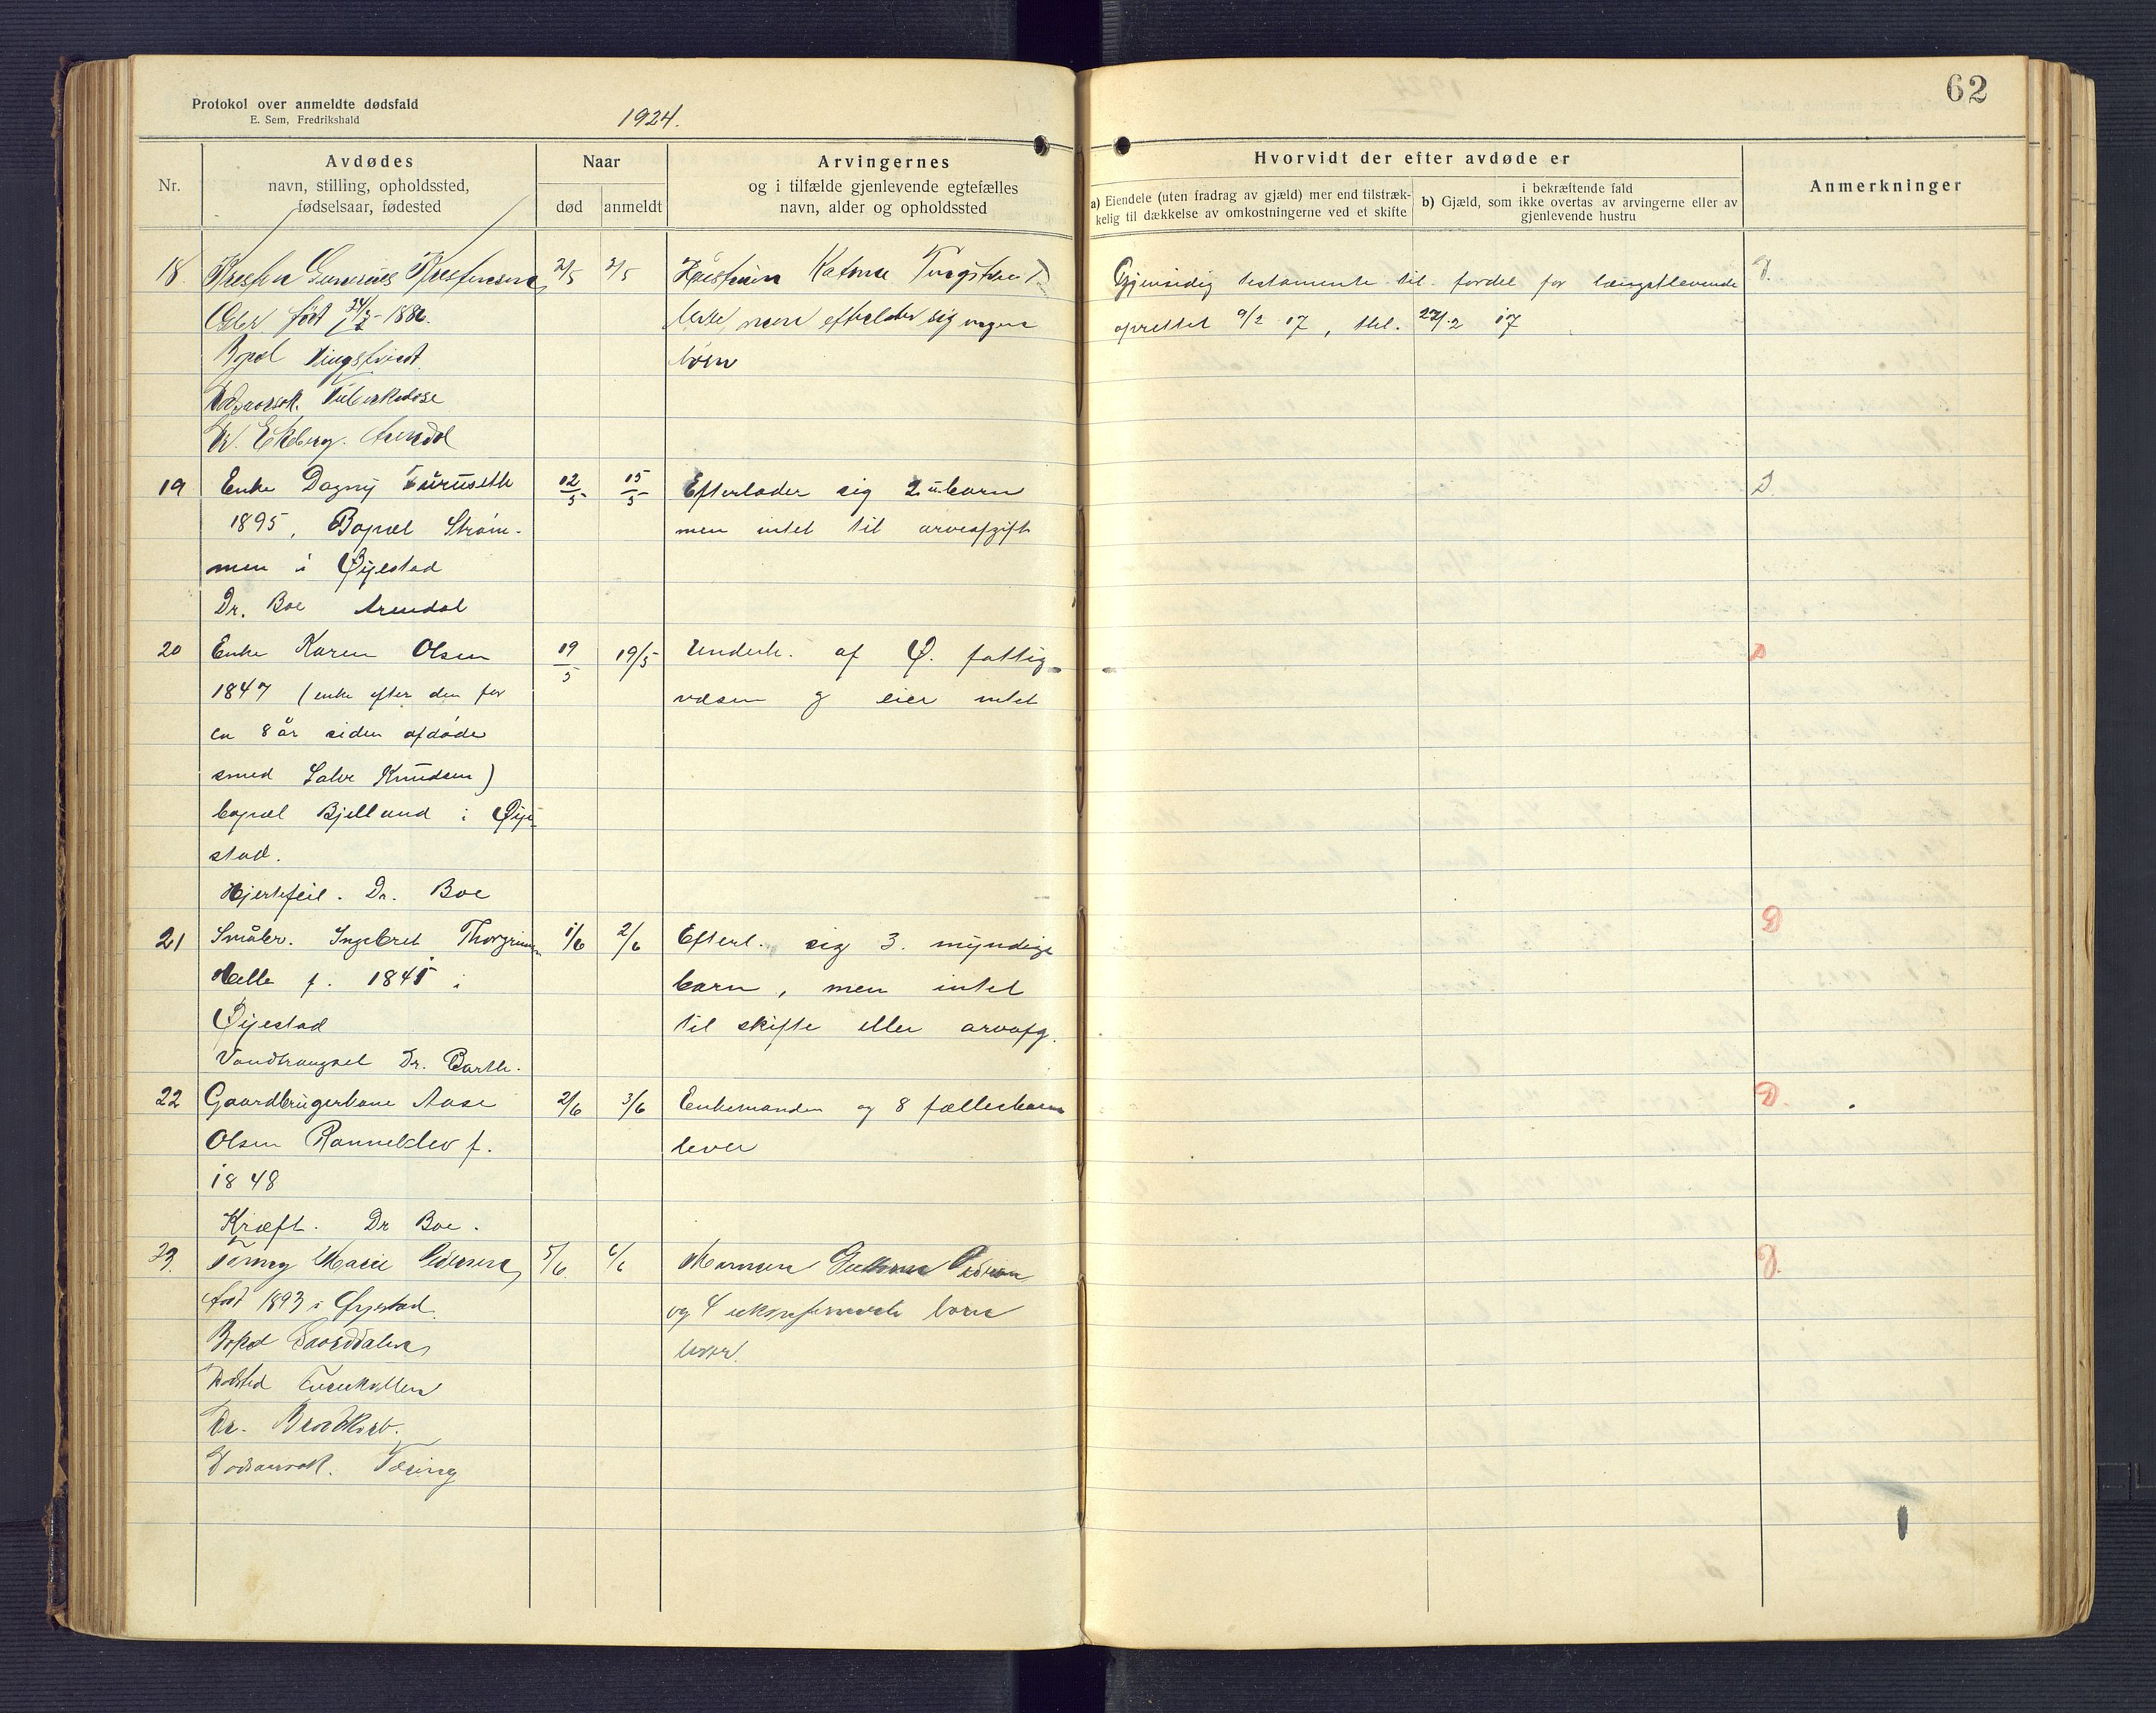 62
Protokol over anmeldte dødsfald
E. Sem, Fredrikshald
1924.
Nr.
Avdødes
navn, stilling, opholdssted,
fødselsaar, fødested
Naar
død
anmeldt
Arvingernes
og i tilfælde gjenlevende egtefælles
navn, alder og opholdssted
Hvorvidt der efter avdøde er
a) Eiendele (uten fradrag av gjæld) mer end tilstræk-
kelig til dækkelse av omkostningerne ved et skifte
i bekræftende fald
b) Gjæld, som ikke overtas av arvingerne eller av
gjenlevende hustru
Anmerkninger
18.
født 1886.
Bopæl
Tuberkulose
Ekeberg. Arendal
2/5
2/5
lever, men efterlater sig ingen
børn
Gjensidig testamente til fordel for længstlevende
oprettet 9/2 17, thl. 22/2 17
19
Enke Dagny Furuseth
1895, Bopæl Strøm-
men i Øyestad
Dr. Boe Arendal
12/5
15/5
Efterlader sig 2 u. barn
men intet til arveafgift
D.
20
Enke Karen Olsen
1847 (enke efter den for
ca 8 år siden afdøde
smed Salve Knudsen)
bopæl Bjelland i Øye
stad.
Hjertefeil. Dr. Boe
19/5
19/5
Underh. af Ø. fattig-
væsen og eier intet
21
Småbr. Ingebret Thorgrimsen
Helle f. 1845 i
Øyestad
Vandtrangsel Dr. Barth.
1/6
2/6
Efterl. sig 3. myndige
barn, men intet
til skifte eller arveafg.
D
22
Gaardbrugerkone Aase
Olsen Ranneklev f.
1848
Kræft. Dr Boe.
2/6
3/6
Enkemanden og 8 fællesbarn
lever
D.
23.
Marie Pedersen,
født 1893 i Øyestad
Bopæl
Dødsted
Dr.
Dødsaarsak. Tæring
5/6
6/6
Mannen Pedersen
og 4 ukonfirmerte børn
lever.